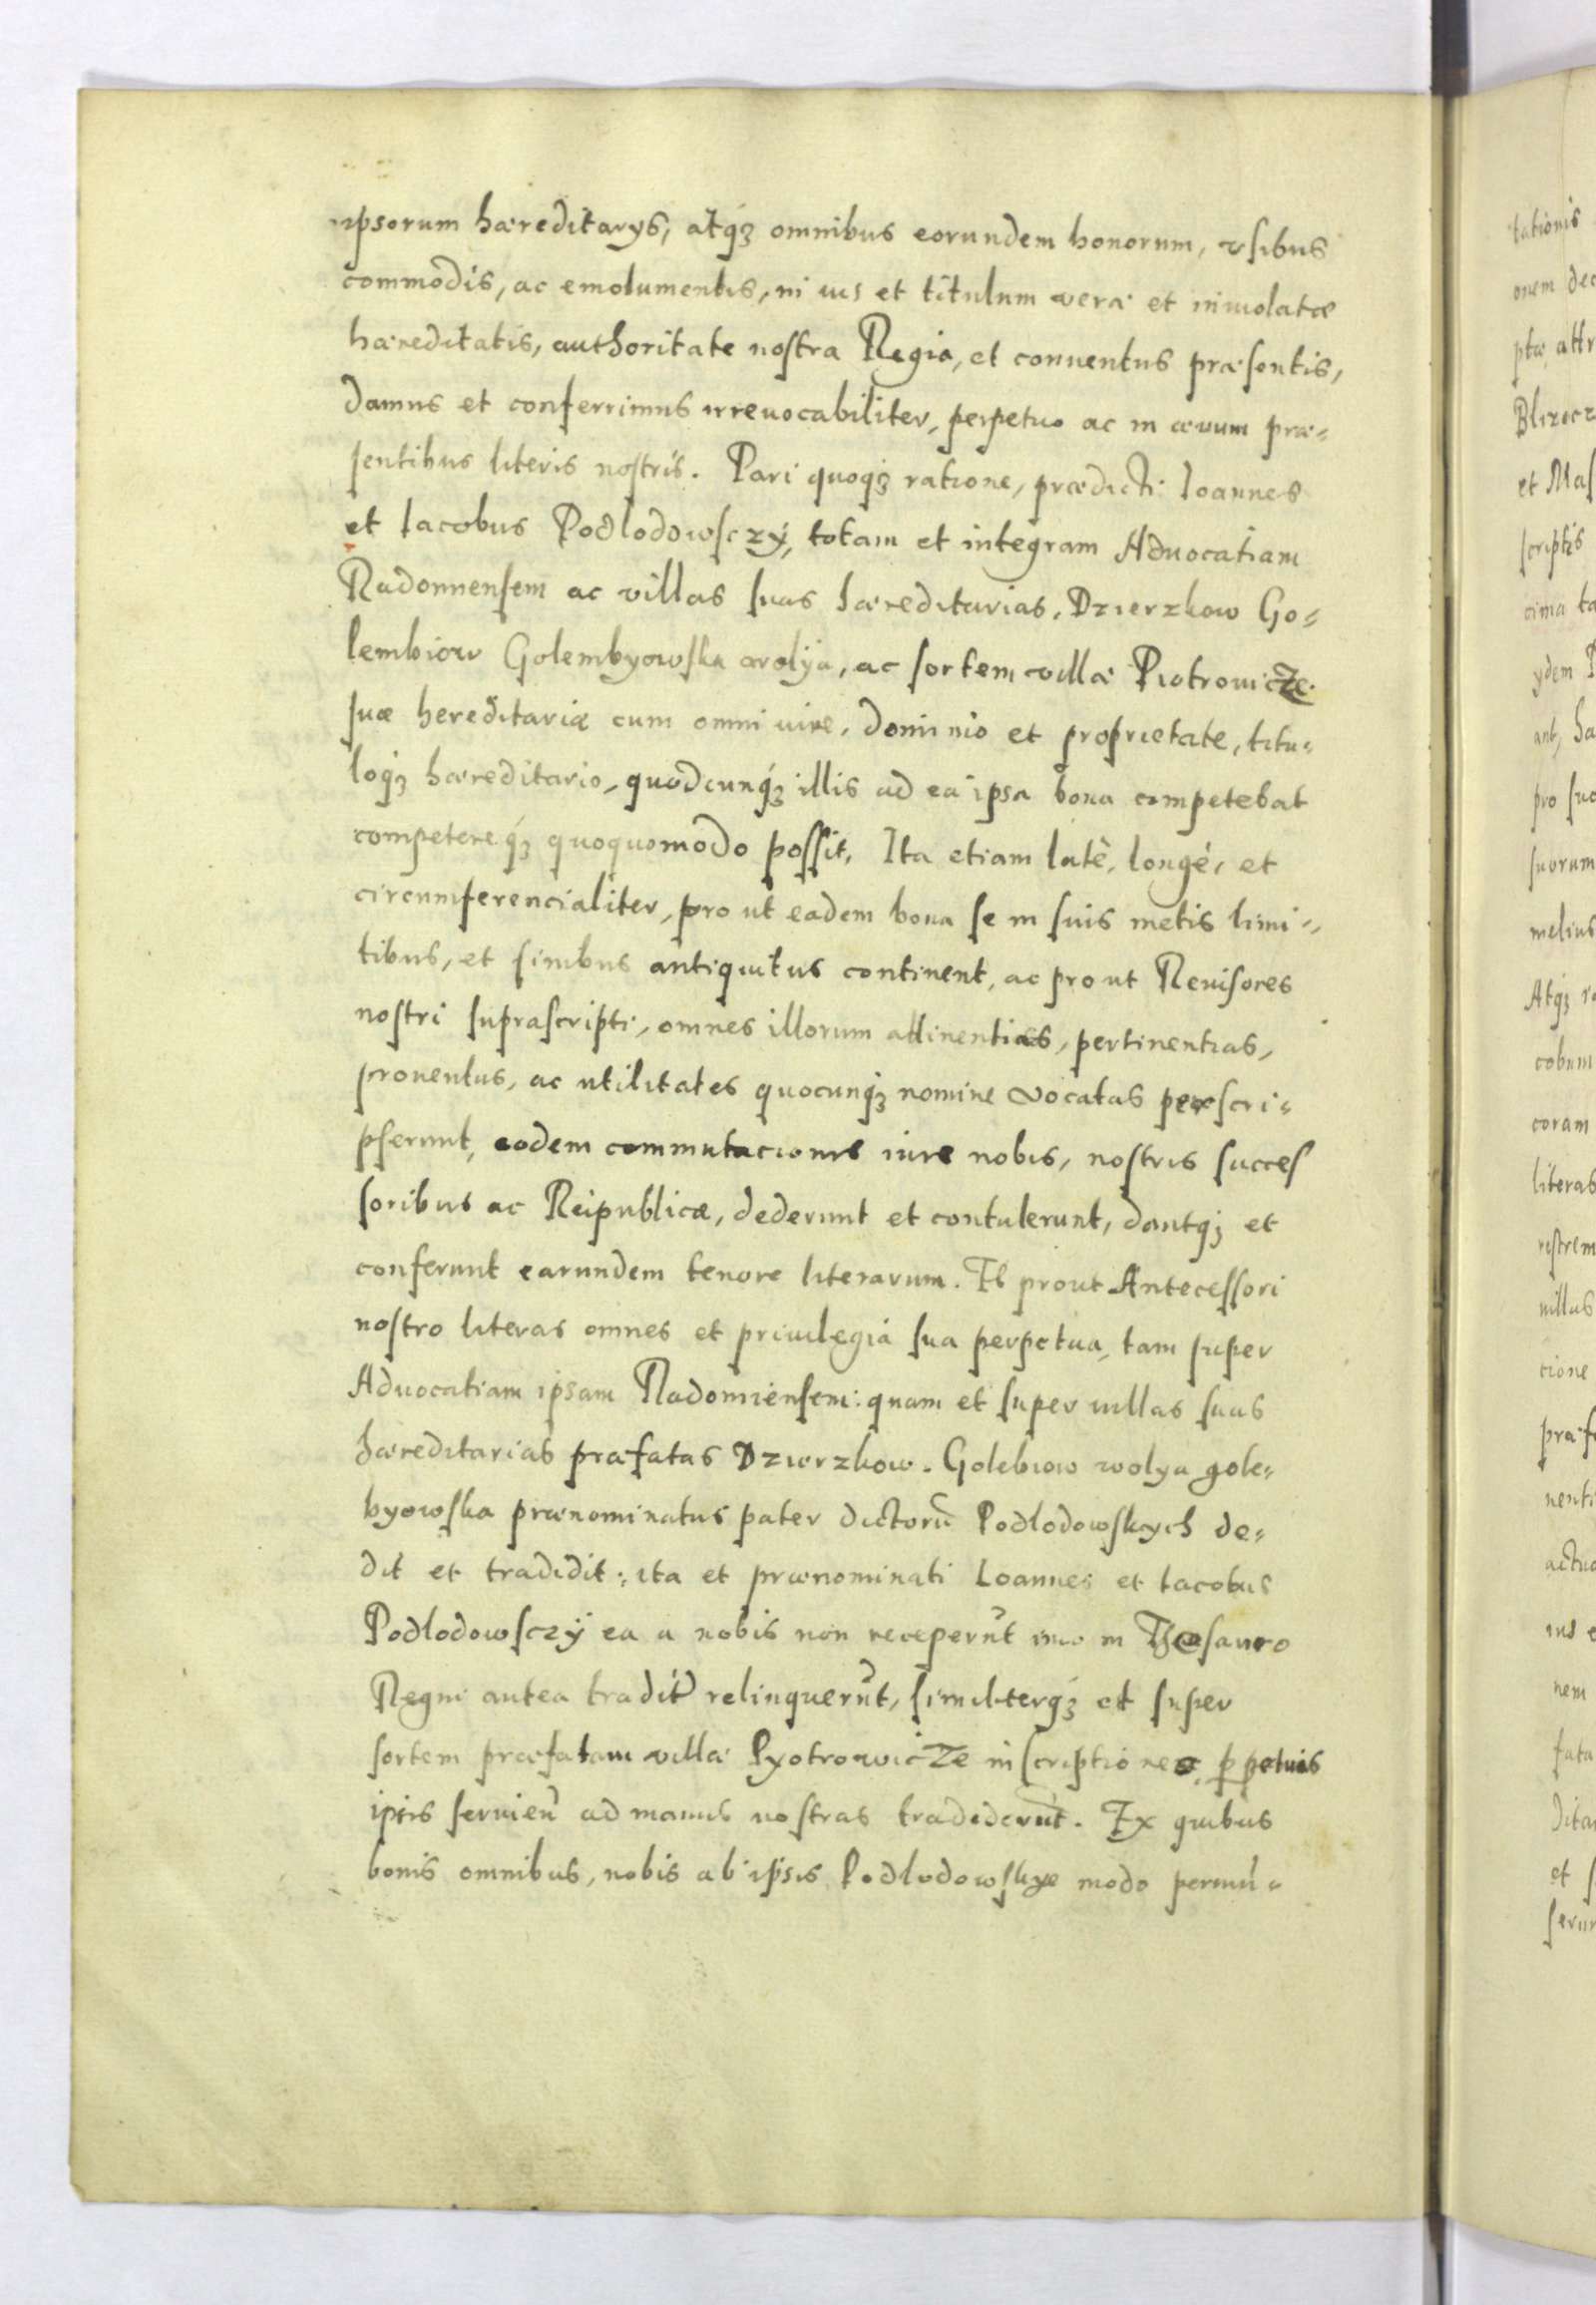 ipsorum hæreditarys, atq́ꝫ omnibus eorundem honorum, vsibus
commodis, ac emolumentis, in ius et titulum veræ et inuiolatæ
hæreditatis, authoritate nostra Regia, et conuentus præsentis,
damus et conferrimus irreuocabiliter, perpetuo ac in æuum præ=
sentibus literis nostris. Pari quoq́ꝫ ratione, prædicti Ioannes
et Iacobus Podlodowsczÿ, totam et integram Aduocatiam
Radomiensem ac villas suas hæreditarias, Dzierzkow Go=
lembiow Golembyowska wolya, ac sortem villæ Piotrowicze
suæ hereditariæ cum omni iure, dominio et proprietate, titu=
loq́ꝫ hæreditario, quodcunq́ꝫ illis ad ea ipsa bona competebat
competereq́ꝫ quoquomodo possit, Ita etiam latè, longè, et
circumferencialiter, pro ut eadem bona se in suis metis limi=
tibus, et finibus antiquitus continent, ac pro ut Reuisores
nostri suprascripti, omnes illorum attinentias, pertinentias,
prouentus, ac utilitates quocunq́ꝫ nomine vocatas perscri=
pserunt, eodem commutacionis iure nobis, nostris succes
soribus ac Reipublicæ, dederunt et contulerunt, dantq́ꝫ et
conferunt earundem tenore literarum. Et prout Antecessori
nostro literas omnes et priuilegia sua perpetua, tam super
Aduocatiam ipsam Radomiensem: quam et super uillas suas
hæreditarias præfatas Dzierzkow. Golebiow wolya gole=
byowska prænominatus pater dictorũ Podlodowskych de=
dit et tradidit: ita et prænominati Ioannes et Iacobus
Podlodowsczÿ ea a nobis non receperũt imo in Thesauro
Regni antea tradit relinquerũt, similiterq́ꝫ et super
sortem præfatam villæ Pyotrowicze inscriptiones ꝑpetuis
ipsis seruień ad manus nostras tradiderũt. Ex quibus
bonis omnibus, nobis ab ipsis Podlodowskye modo permu=
tationis
onem dec
ptæ attr
Blizocz
et Mas
scriptis
cima ta
ydem P
ant, ha
pro suo
suorum
melius
Atq́ꝫ
cobum
coram
literas
uillas
cione
præf
nenti
actua
ius e
nem
fata
dita
et s
serun